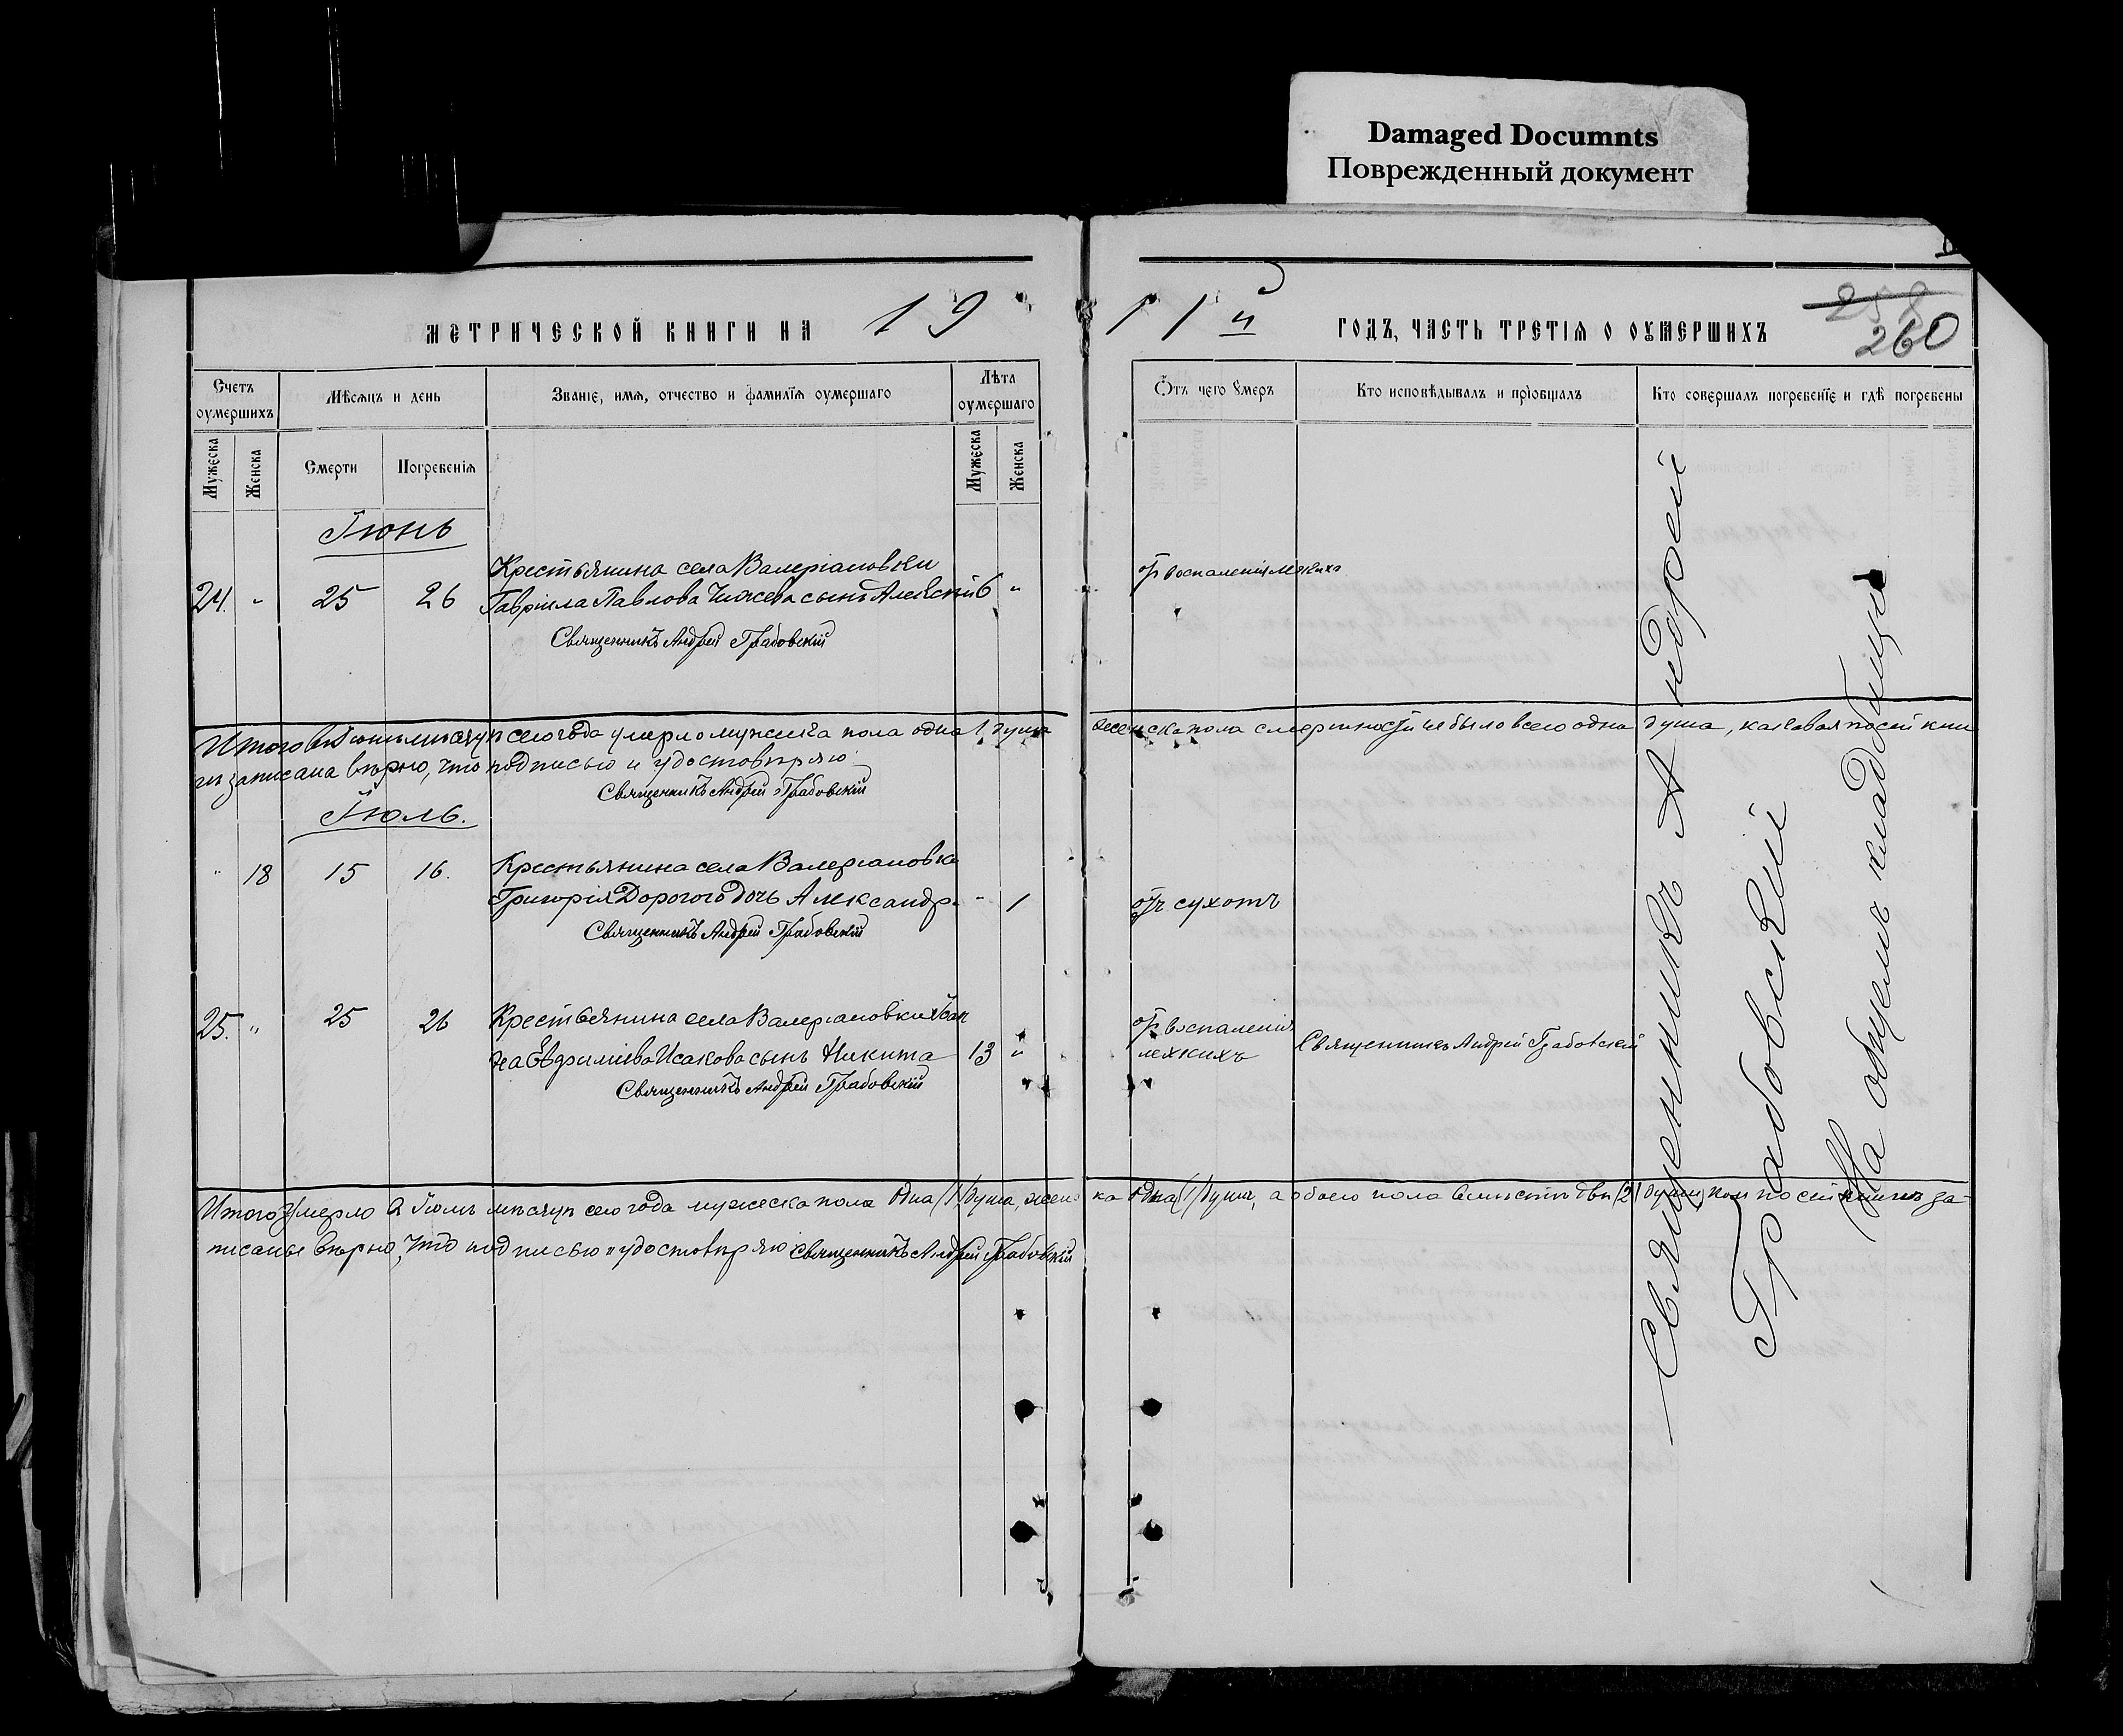 Damaged Documnts
Поврежденный документ
МЕТРИЧЕСКОЙ КНИГИ НА 19
11й ГОДЪ, ЧАСТЬ ТРЕТІЯ О ОУМЕРШИХЪ
258
260
Счетъ оумершихъ
Мѣсяцъ и день
Званіе, имя, отчество и фамилія оумершаго
Лѣта оумершаго
Отъ чего умеръ
Кто исповѣдывалъ и пріобщалъ
Кто совершалъ погребеніе и гдѣ погребены
Мужеска
Женска
Смерти
Погребенія
Мужеска
Женска
Іюнь
24. " 25 26
Крестьянина села Валеріановки
Гавріила Павлова сынъ Алексѣй 6 "
Священникъ Андрей Грабовскій
отъ воспаленія легкихъ
Итого въ Іюнѣ мѣсяцѣ сего года умерло мужеска пола одна 1 душа женска пола смертности не было всего одна душа, каковая по сей кни
гѣ записана вѣрно, что подписью и удостовѣряю
Священникъ Андрей Грабовскій
Іюль.
" 18 15 16.
Крестьянина села Валеріановки
Григорія Дорогого дочь Александр. " 1
Священникъ Андрей Грабовскій
отъ сухотъ
25. " 25 26
Крестьянина села Валеріановки Іоан
на Исакова сынъ Никита 13 "
Священникъ Андрей Грабовскій
отъ воспаленія
легкихъ
Священникъ Андрей Грабовскій
Священникъ Андрей
Грабовскій
На общемъ кладбищѣ
Итого умерло в Іюлѣ мѣсяцѣ сего года мужеска пола одна (1) душа, женс ка одна (1) душа, а обоего пола вмѣстѣ двѣ (2) души, кои по сей книгѣ за-
писаны вѣрно, что подписью и удостовѣряю Священникъ Андрей Грабовскій